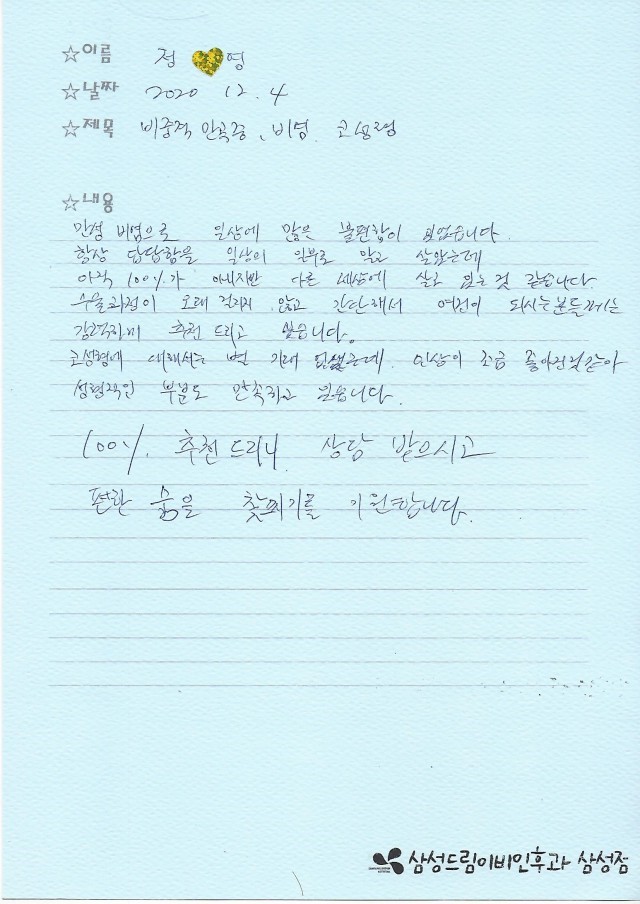 ☆이름 정 영
☆날짜 2020 12. 4
☆제목 비중격 만곡증, 비염 코성형
☆내용
만성 비염으로 일상에 많은 불편함이 있었습니다.
항상 답답함을 일상의 일부로 알고 살았는데
아직 100%가 아니지만 다른 세상에 살고 있는 것 같습니다.
수술과정이 오래 걸리지 않고 간단해서 여건이 되시는 분들께는
강력하게 추천 드리고 싶습니다.
코성형에 대해서는 별 기대 없었는데. 인상이 조금 좋아진것같아
성형적인 부분도 만족하고 있습니다.
100%. 추천 드리니 상담 받으시고
편한 숨을 찾으시기를 기원합니다.
삼성드림이비인후과 삼성점